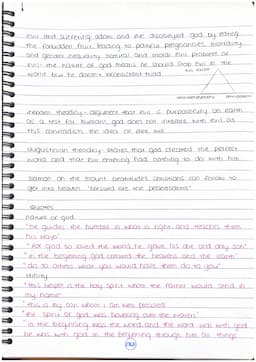 evil and suffering adam and eve disobeyed god by eating
the forbidden fruit leading to painful pregnancies, mortality
and gender inequality. natural and moral evil. problem of
evil: the nature of god means he should stop evil in the
world but he doesn't. inconsistent triad
evil exists
omnibenevolent
omnipotent
irenean theodicy - argument that evil is purposefully on earth
as a test for humans. god does not interfere with evil as
this contradicts the idea of free will
augustinian theodicy: states that god created the perfect
world and that evil entering had nothing to do with him
sermon on the mount: beatitudes christians can follow to
get into heaven. "blessed are the peacemakers"
quotes
nature of god
"he guides the humble in what is right and teaches them
his ways"
"for god so loved the world, he gave his one and only son"
"in the beginning god created the heavens and the earth"
"do to others what you would have them do to you"
trinity
"this helper is the holy spirit whom the father would send in
my name"
"this is my son whom i am well pleased"
"the spirit of god was hovering over the waters"
"in the beginning was the word and the word was with god
he was with god in the beginning through him all things